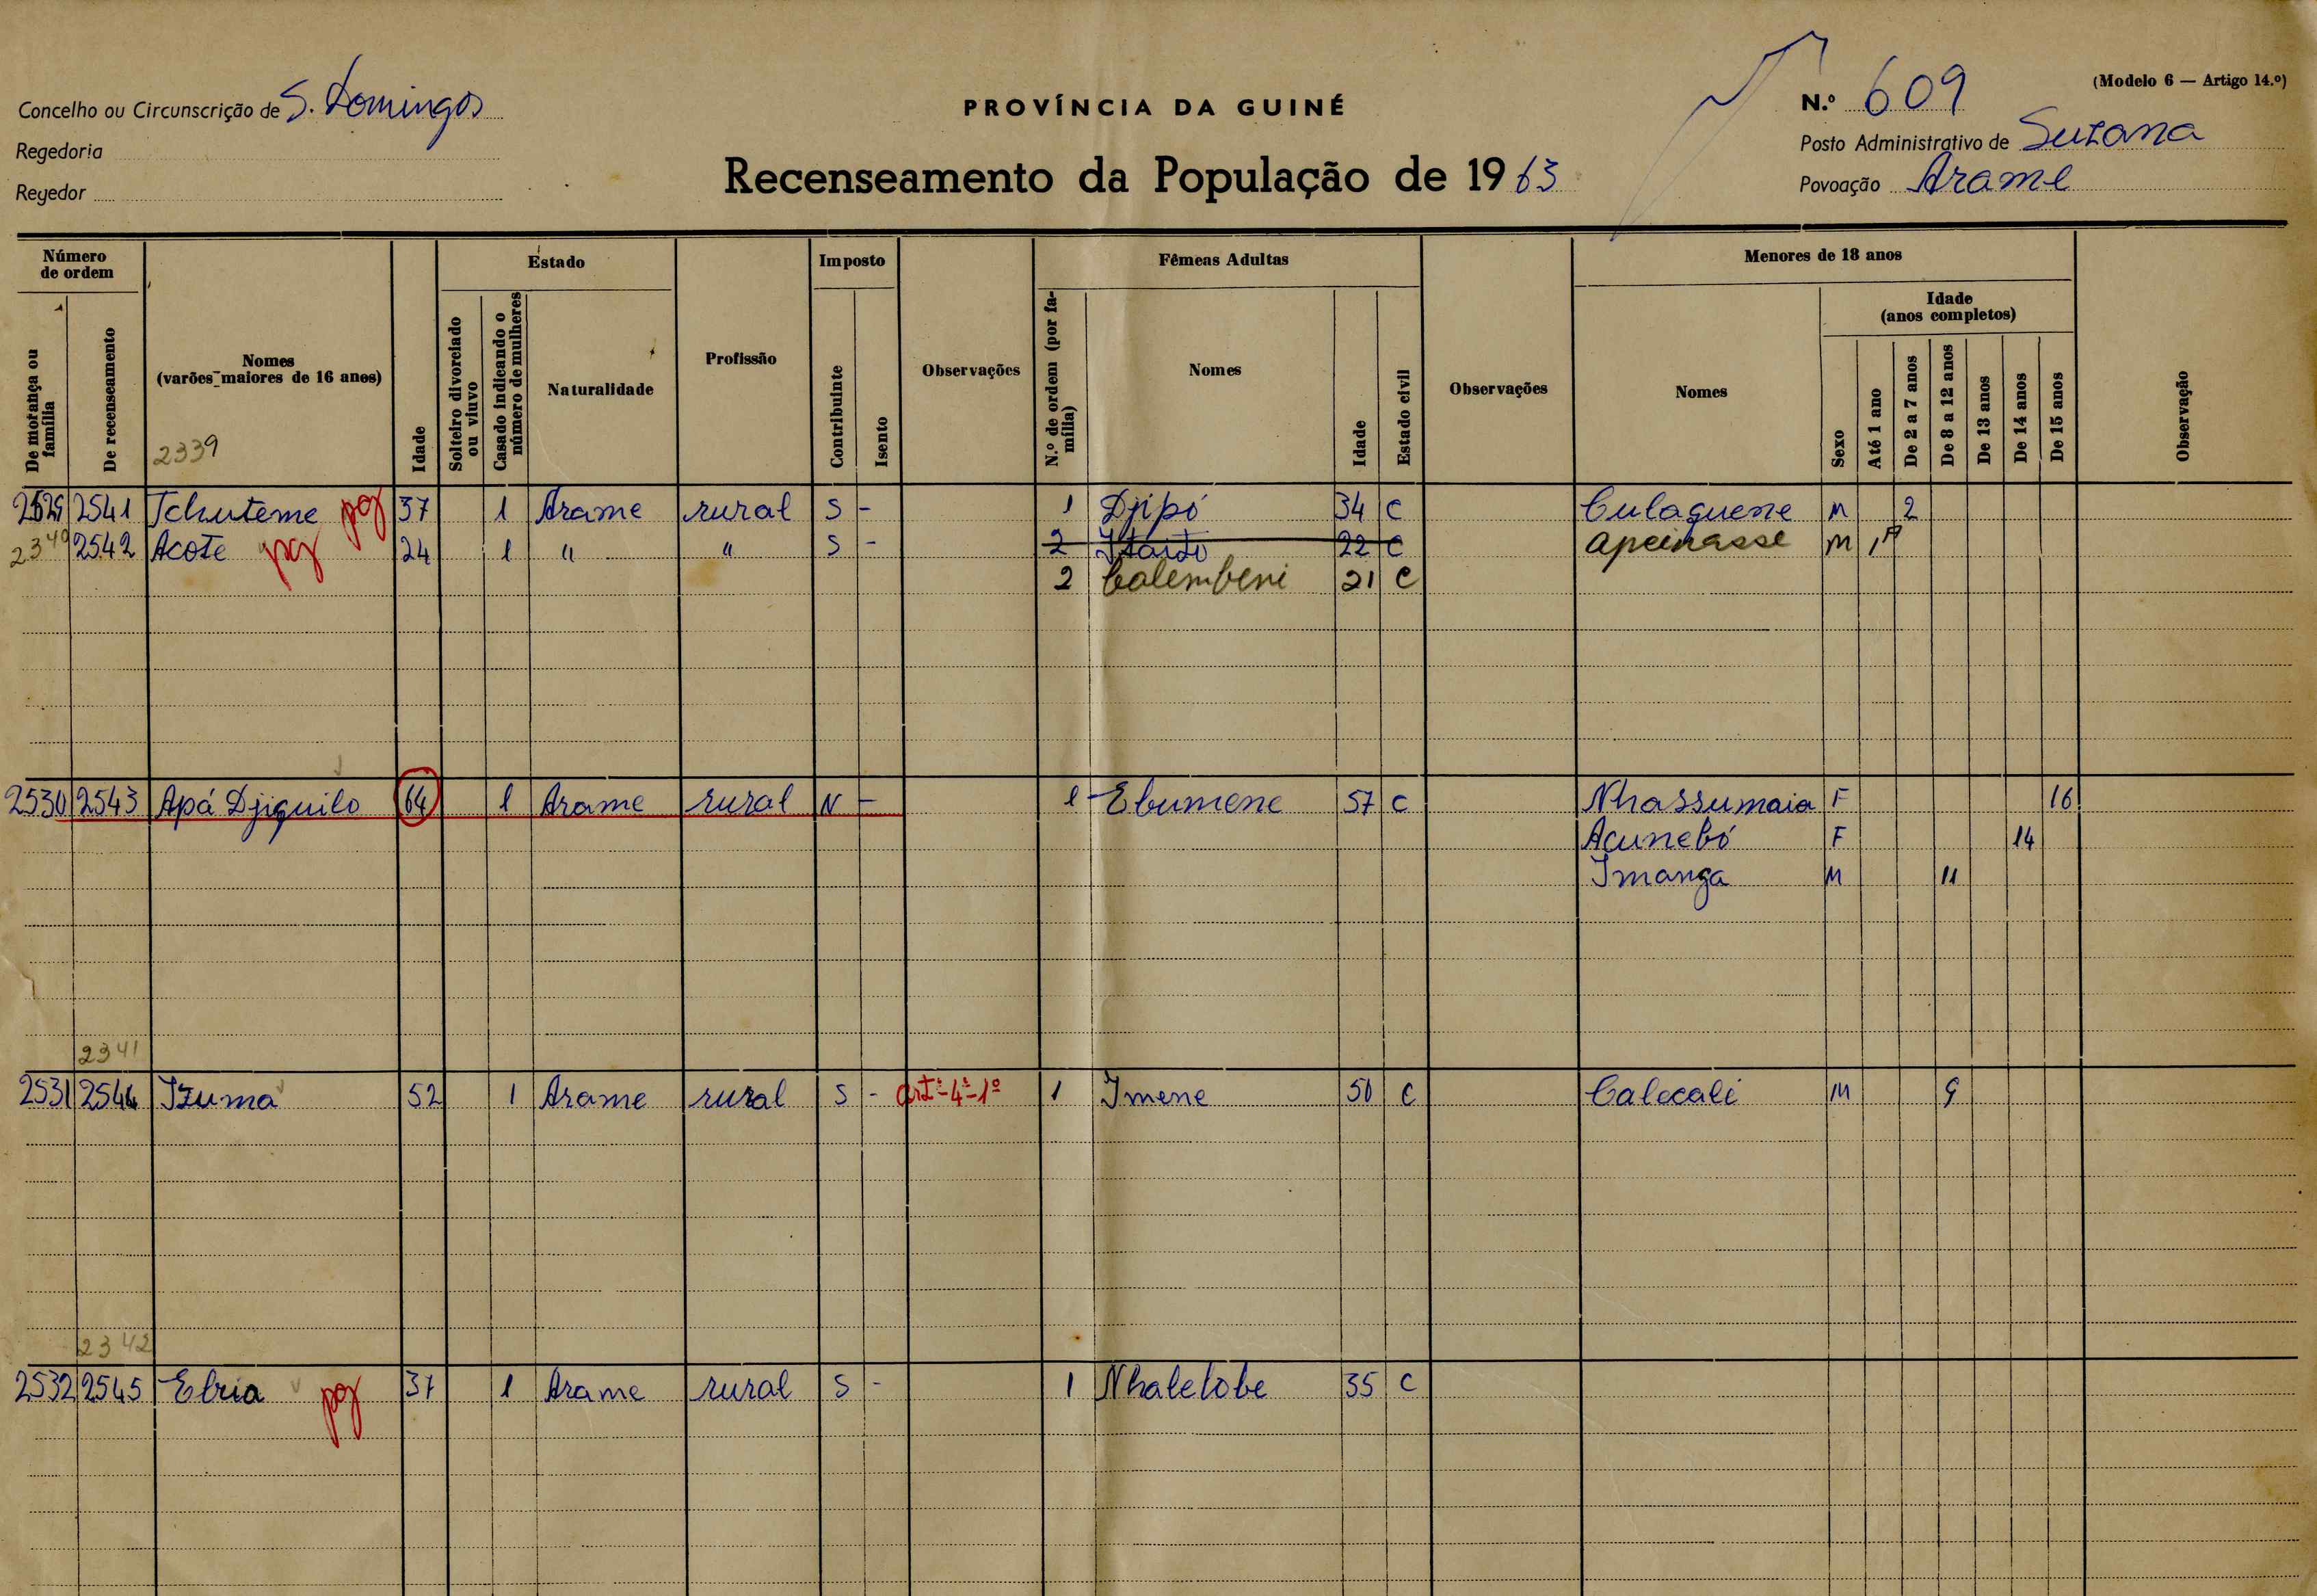 (Modelo 6 — Artigo 14.º)
Concelho ou Circunscrição de S. Domingos
PROVÍNCIA DA GUINÉ
N.º 609
Regedoria
Posto Administrativo de Suzana
Regedor
Recenseamento da População de 1963
Povoação Arame
Número de ordem
De morança ou família
De recenseamento
Nomes (varões maiores de 16 anos)
2339
Idade
Estado
Solteiro divorciado ou viuvo
Casado indicando o número de mulheres
Naturalidade
Profissão
Imposto
Contribuinte
Isento
Observações
Fêmeas Adultas
N.º de ordem (por família)
Nomes
Idade
Estado civil
Observações
Menores de 18 anos
Nomes
Sexo
Idade (anos completos)
Até 1 ano
De 2 a 7 anos
De 8 a 12 anos
De 13 anos
De 14 anos
De 15 anos
Observação
2529 2541 Tchuteme pg 37 1 Arame rural S - 1 Djipó 34 C Culaguene M 2
2340 2542 Acote pg 24 1 " " S - 2 22 C M
2 Calembeni 21 C
2530 2543 Apá Djiquilo 64 1 Arame rural N - 1 Ebumene 57 C Nhassumaia F 16
Acunebó F 14
Imanga M 11
2341
2531 2544 Izuma 52 1 Arame rural S - artº-4º-1º 1 Imene 50 C Calecali M 9
2342
2532 2545 Ebria pg 37 1 Arame rural S - 1 Nhalelobe 35 C